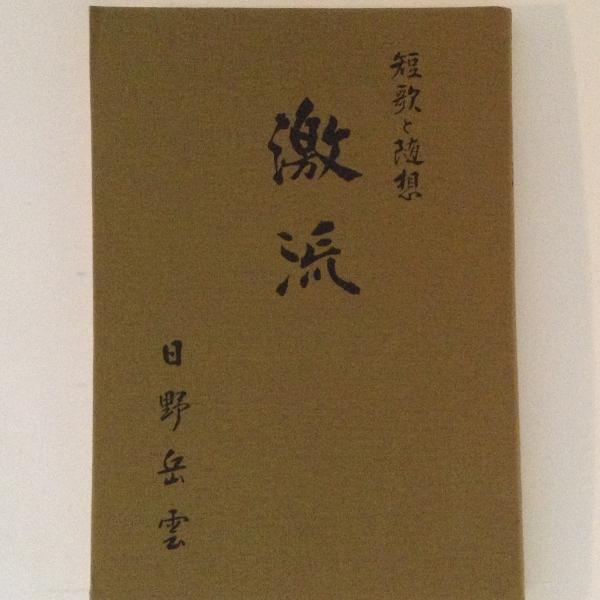 短歌と随想
激流
日野岳雲